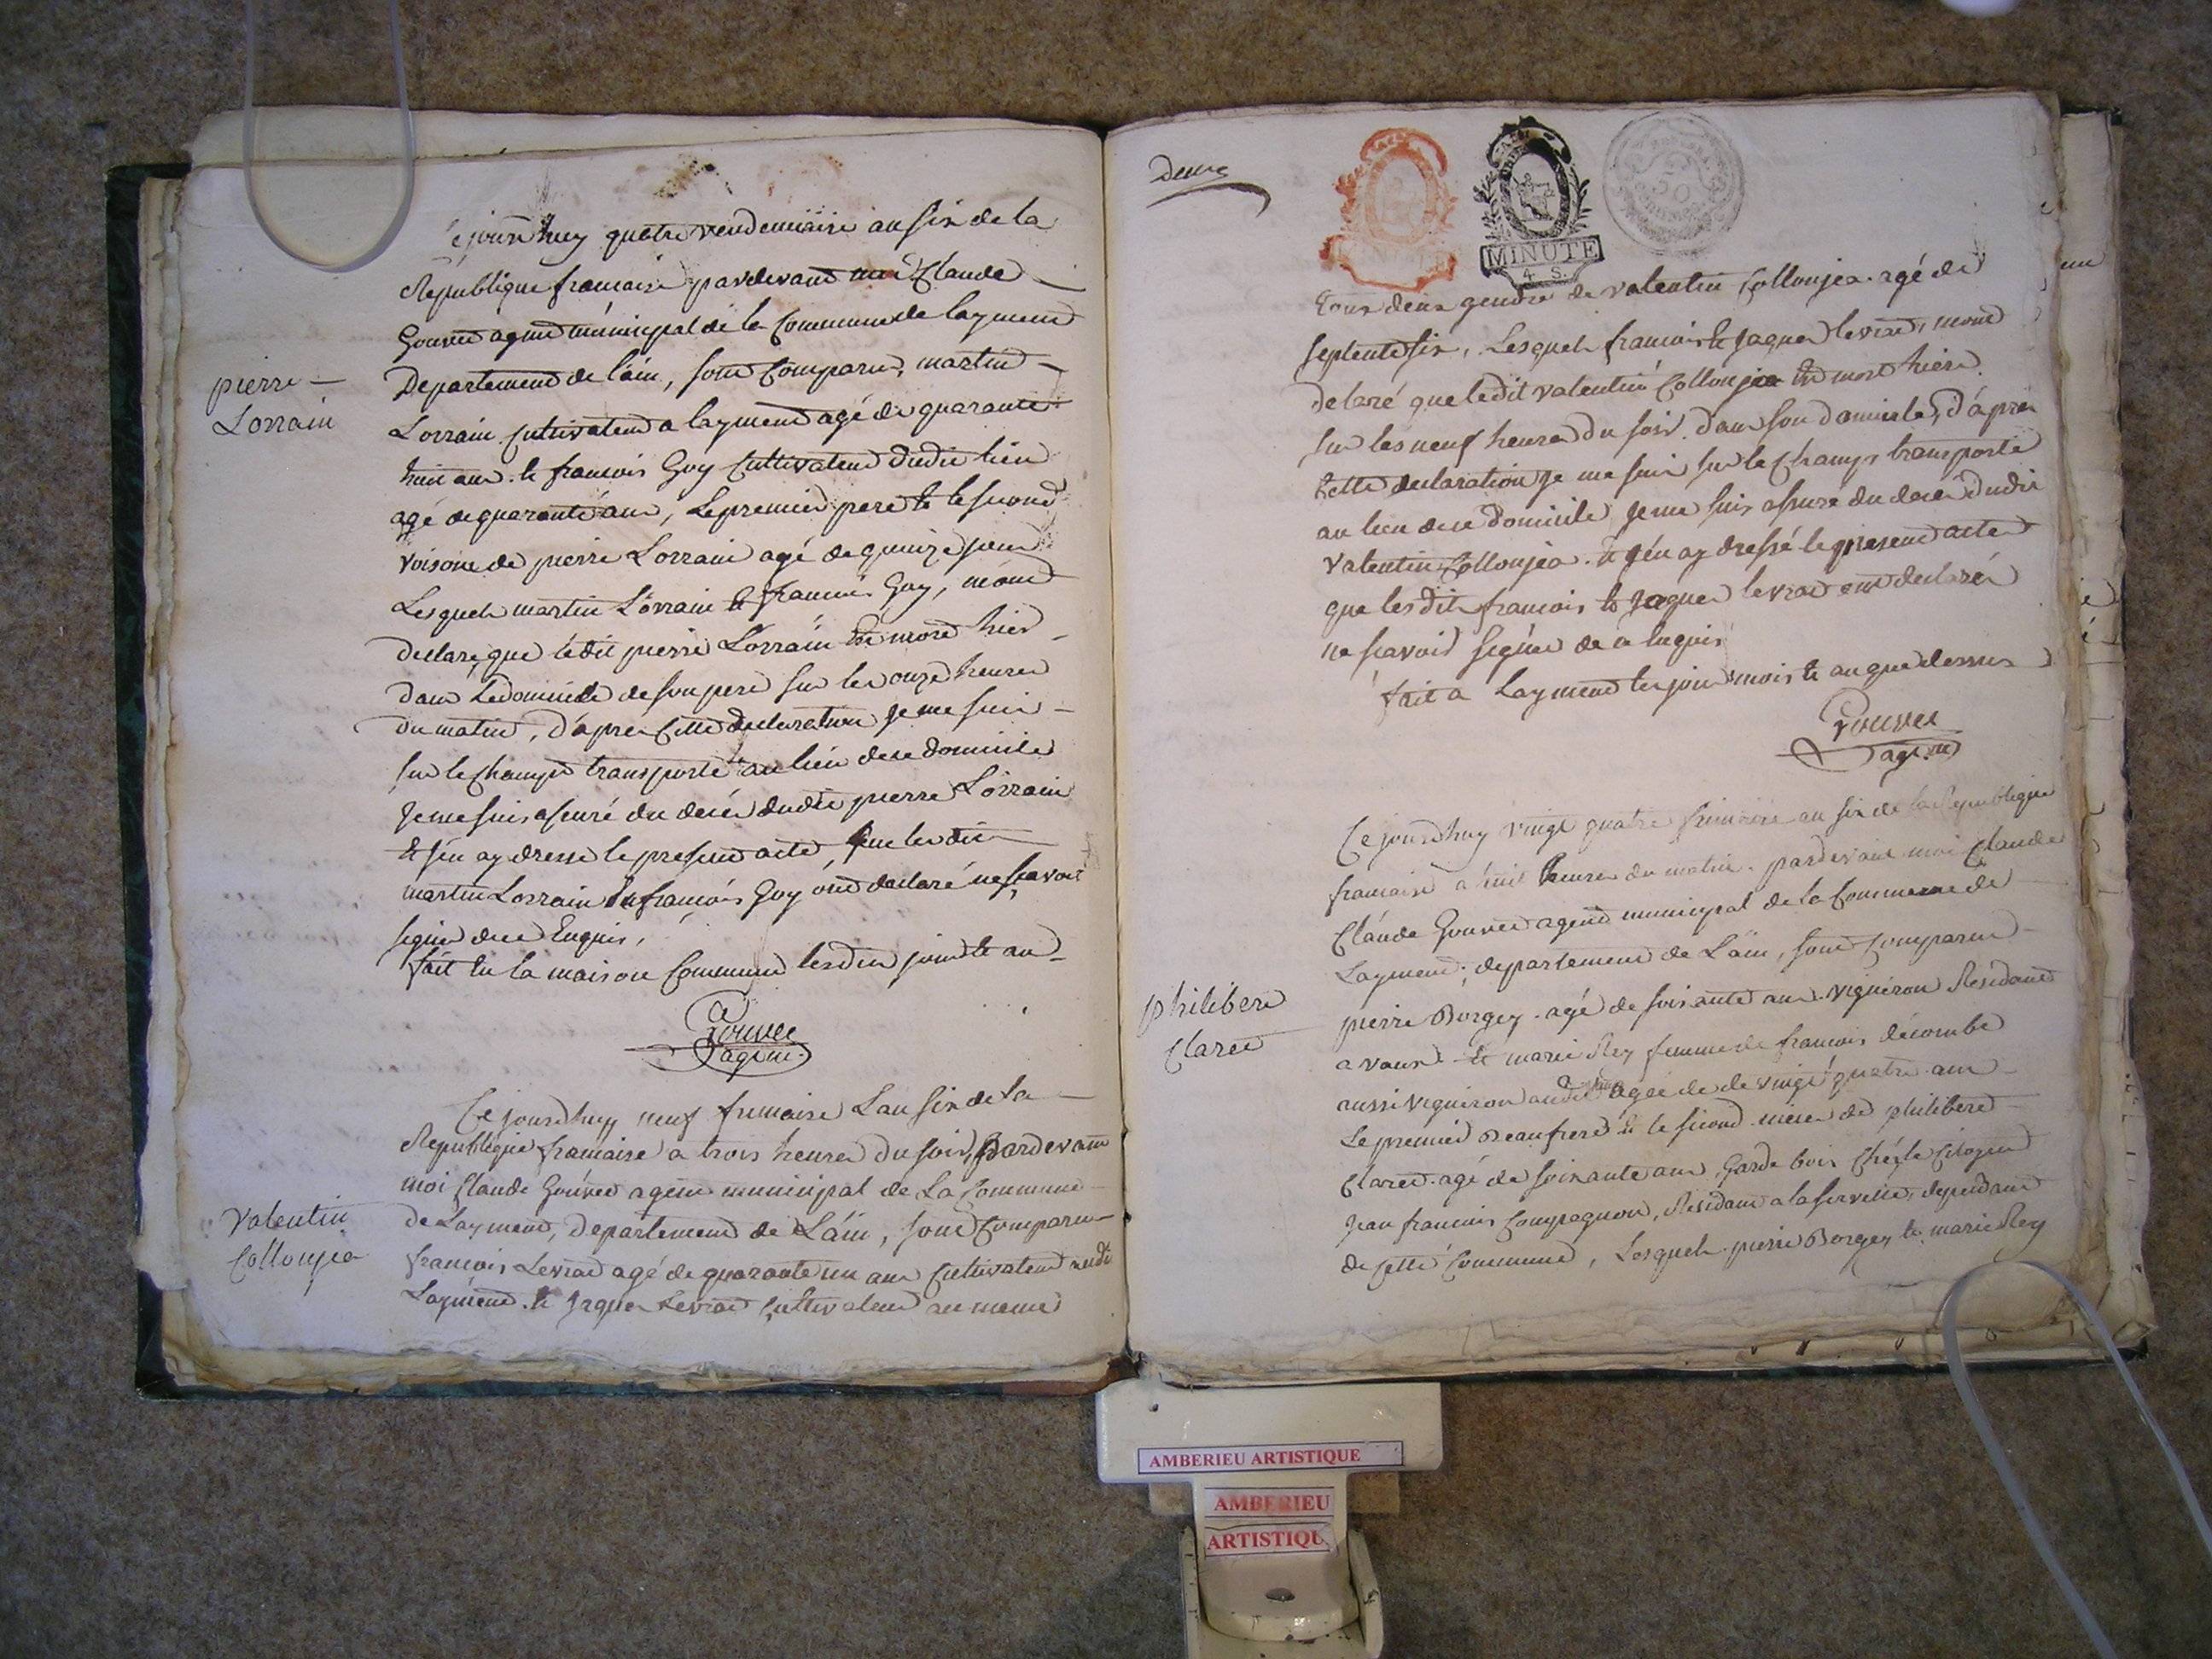 pierre
Lorrain
Cejourdhuy quatre vendemiaire an six de la
République francaise pardevant moi Claude
Gouvee agent municipal de la Commune de layment
Departement de l'ain, sont Comparu, martin
Lorrain Cultivateur a layment agé de quarante
huit ans. et francois Guy Cultivateur dudit lieu
agé de quarante ans, Le premier pere et le second
voisoin de pierre Lorrain agé de quinze jours
Lesquels martin Lorrain et francois Guy, mont
declaré que le dit pierre Lorrain est mort hier
dans Le domicile de son pere sur les onze heures
du matin, d'apres Cette declaration Je me suis
sur le champs transporté au lieu de ce domicile
Je me suis asuré du decés dudit pierre Lorrain
et j'en ay dressé le present acte, que les dits
martin Lorrain et francois Guy ont declaré ne scavoir
signer de ce Enquis,
fait En la maison Commune lesdits jour et an
Gouvee
agent.
Valentin
Collonjea
Ce jourdhuy neuf frimaire L'an six de la
Republique francaise a trois heures du soir, pardevant
moi Claude Gouvee agent municipal de La Commune
de Layment, Departement de L'ain, sont Comparu
francois Levrat agé de quarante un ans Cultivateur audit
Layment. et Jaques Levrat Cultivateur au meme
Deux
MINUTE
4. S.
50
tous deux gendre de valentin Collonjea. agé de
septente six, Lesquels francois et Jaques levrat, mont
delaré que ledit valentin Collonjea est mort hiere
sur les neuf heures du soir. dans son domicile, d'apres
Cette declaration Je me suis sur le champs transporté
au lieu de ce domicile Je me suis assuré du deces dudit
Valentin Collonjea. et j'en ay dressé le present acte
que lesdits francois et Jaques levrat ont declarés
ne scavoir signer de ce enquis
fait a Layment les jour mois et an que dessus
Gouvee
agent
philibert
Claret
Ce jourdhuy vingt quatre frimaire an six de la Republique
francaise a huit heures du matin. pardevant moi Claude
Claude Gouvee agent municipal de la Commune de
Layment, departement de L'ain, sont Comparu
pierre Borgey. agé de soixante ans. vigneron Residant
a vaux et marie Rey femme de francois decombe
aussi vigneron audit vaux agée de de vingt quatre ans
Le premier Beaufrere et le second niece de philibert
Claret. agé de soixante ans, Garde bois Chéz le Citoyen
Jean francois Compagnon, Residant a la servette, dependant
de cette Commune, Lesquels pierre Borgey et marie Rey
AMBERIEU ARTISTIQUE
AMBERIEU
ARTISTIQU